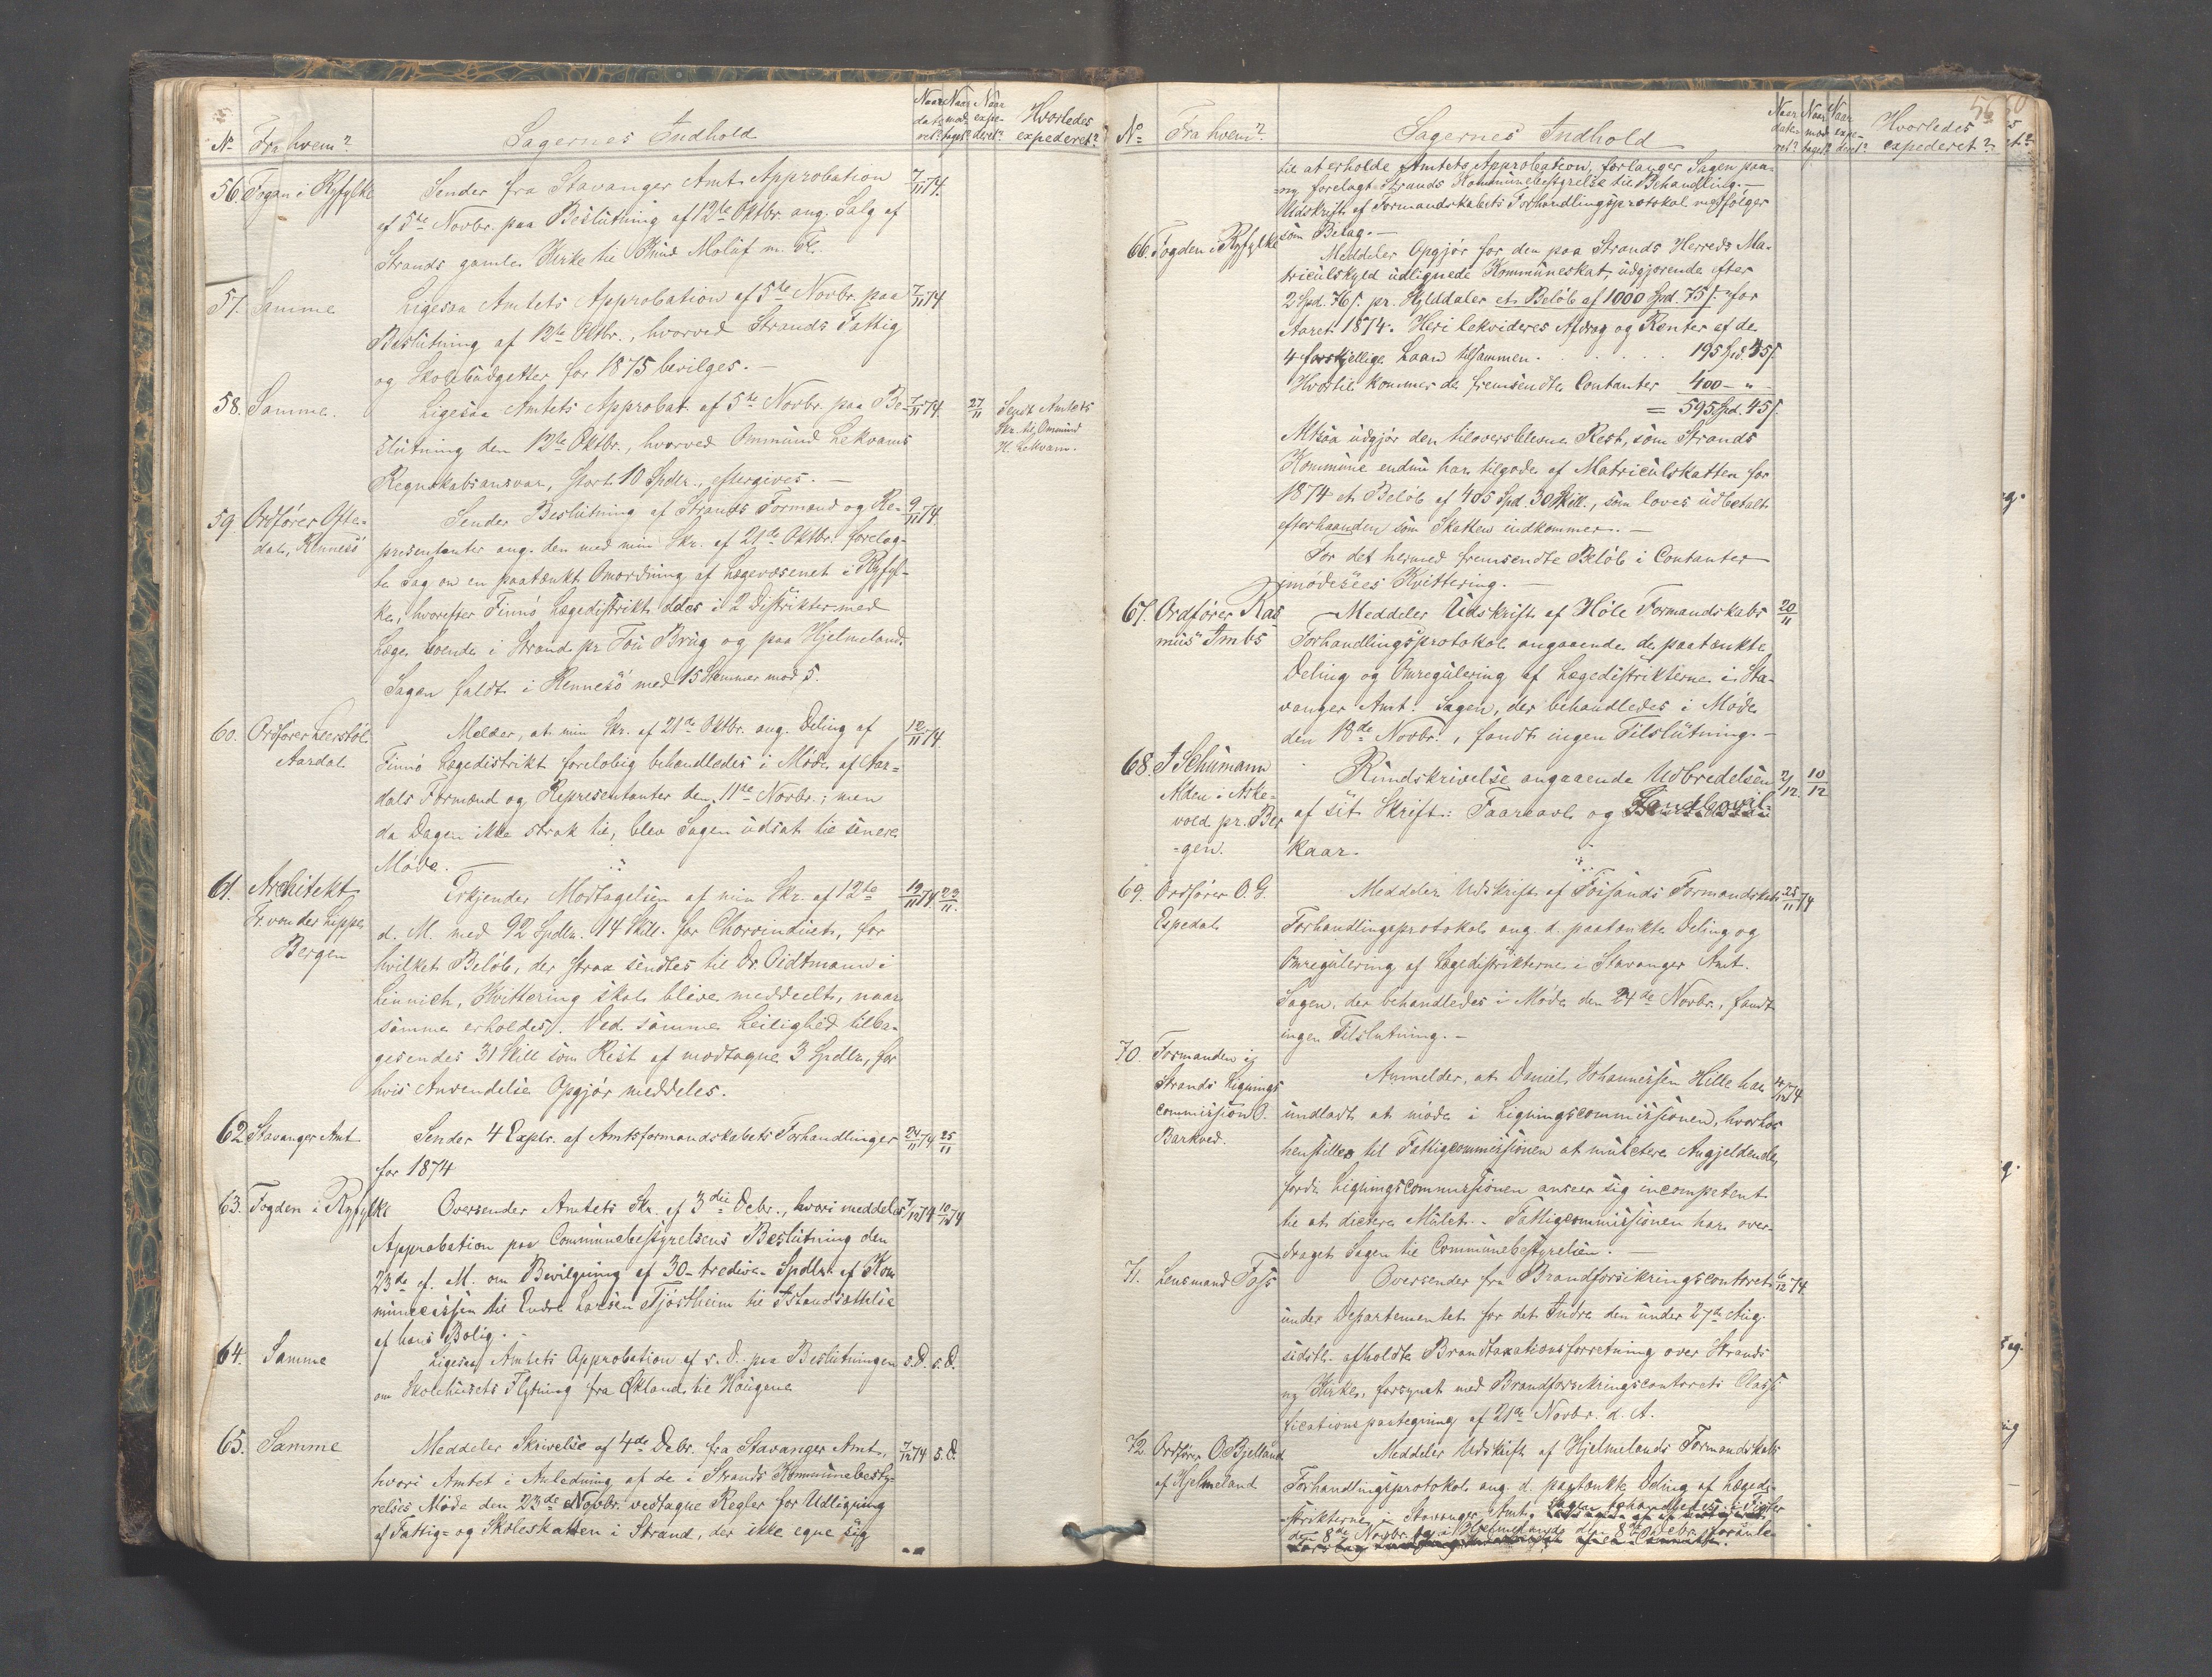 No Fra hvem? Sagernes Indhold Naar dateret? Naar modtaget? Naar expederet? Hvorledes expederet?
56. Fogdn i Ryfylke Sender fra Stavanger Amt Approbation 7/11 74.
af 5te Novbr. paa Beslutning af 12te Oktbr ang. Salg af
Strands gamle Kirke til Knud Moluf m. Fl.
57. Samme Ligesaa Amtets Approbation af 5te Novbr. paa 7/11 74
Beslutning af 12te Oktbr., hvorved Strands Fattig
og Skolebudgetter for 1875 bevilges. —
58. Samme. Ligesaa Amtets Approbat. af 5te Novbr. paa Be- 7/11 74. 27/11 Sendt Amtets
slutning den 12te Oktbr., hvorved Ommund Lekvams Skr. til Ommund
H. Lekvam.
Regnskabsansvar, stort 10 Spdlr., eftergives. —
59. Ordfører Ofte- Sender Beslutning af Strands Formænd og Re- 9/11 74.
dal, Rennesö præsentanter ang. den med min Skr. af 21de Oktbr. forelag-
te Sag om en paatænkt Omordning af Lægevæsenet i Ryfyl-
ke, hvorefter Finnö Lægedistrikt deles i 2 Distrikter med
Læge boende i Strand pr. Tou Brug og paa Hjelmeland.
Sagen faldt i Rennesö med 15 Stemmer mod 5.
60. Ordfører Leerstöl Melder, at min Skr. af 21de Oktbr. ang. Deling af 12/11 74.
Aardal. Finnö Lægedistrikt foreløbig behandledes i Møde af Aar-
dals Formænd og Repræsentanter den 11te Novbr.; men
da Dagen ikke strak til, blev Sagen udsat til senere
Møde.
61. Architekt Erkjender Modtagelsen af min Skr. af 12te 19/11 74 23/11.
Fr. von der Lippe d. M. med 92 Spdlr. 14 Skill. for Chorvinduet, for
Bergen hvilket Beløb, der strax sendtes til Dr. Oidtmann i
Linnich, Kvittering skal blive meddeelt, naar
samme erholdes. Ved samme Leilighed tilba-
gesendes 31 Skill som Rest af modtagne 3 Spdlr, for
hvis Anvendelse Opgjør meddeles.
62 Stavanger Amt Sender 4 Explr. af Amtsformandskabets Forhandlinger 24/11 74 25/11
for 1874
63. Fogden i Ryfylke Oversender Amtets Skr. af 3die Debr., hvori meddeles 7/12 74 10/12 74
Approbation paa Communebestyrelsens Beslutning den
23de f. M. om Bevilgning af 30 - tredive - Spdlr. af Kom
munecassen til Endre Larsen Tjøstheim til Istandsættelse
af hans Bolig. -
64. Samme Ligesaa Amtets Approbation af s. D. paa Beslutningen s. D. s. D.
om Skolehusets Flytning fra Økland til Haugene
65. Samme Meddeler Skrivelse af 4de Debr. fra Stavanger Amt, 7/12 74 s. D.
hvori Amtet i Anledning af de i Strands Kommunebesty-
relses Møde den 23de Novbr. vedtagne Regler for Udligning
af Fattig- og Skoleskatten i Strand, der ikke egne sig
No Fra hvem? Sagernes Indhold Naar dateret? Naar modtaget? Naar expederet? Hvorledes expederet?
til at erholde Amtets Approbation, forlanger Sagen paa-
ny forelagt Strands Kommunebestyrelse til Behandling. —
Udskrift af Formandskabets Forhandlingsprotokol medfølger
som Bilag. —
66. Fogden i Ryfylke Meddeler Opgjør for den paa Strands Herreds Ma-
triculskyld udlignede Kommuneskat, udgjørende efter
2 Spd. 76 s. pr. Skylddaler et Beløb af 1000 Spd. 75 s. for
Aaret 1874. Heri lekvideres Afdrag og Renter af de
4 forskjellige Laan tilsammen . . . . . . 195 Spd. 45 s.
Hvortil kommer de fremsendte Contanter 400 - " -
= 595 Spd. 45 s.
Altsaa udgjør den tiloversblevne Rest, som Strands
Kommune endnu har tilgode af Matriculskatten for
1874 et Beløb af 405 Spd. 30 Skill., som loves udbetalt
efterhaanden som Skatten indkommer. —
For det hermed fremsendte Beløb i Contanter
imødesees Kvittering. —
67. Ordfører Ras Meddeler Udskrift af Höle Formandskabs 20/11
mus Imbs Forhandlingsprotokol angaaende de paatænkte
Deling og Omregulering af Lægedistrikterne i Sta-
vanger Amt. Sagen, der behandledes i Møde
den 18de Novbr., fandt ingen Tilslutning. —
68. J Schumann Rundskrivelse angaaende Udbredelsen 2/12. 10/12
Alden i Aske- af sit Skrift: Faareavl og
vold pr. Ber kaar.
-gen.
69. Ordfører O. G. Meddeler Udskrift af Fossands Formandskabs 25/11 74
Espedal Forhandlingsprotokol ang. d. paatænkte Deling og
Omregulering af Lægedistrikterne i Stavanger Amt.
Sagen, der behandledes i Møde den 24de Novbr., fandt
ingen Tilslutning. —
70. Formanden i
Strands Lignings Anmelder, at Daniel Johannessen Hille har 4/12 74
commission O. undladt at møde i Ligningscommissionen, hvorhos
Barkved. henstilles til Fattigcommissionen at mulctere Angjeldende,
fordi Ligningscommissionen anseer sig incompetent
til at dictere Mulct. - Fattigcommissionen har over-
draget Sagen til Communebestyrelsen. —
71. Lensmand Foss Oversender fra Brandforsikringscontoret 6/12 74.
under Departementet for det Indre den under 27de Aug.
sidstl. afholdte Brandtaxationsforretning over Strands
ny Kirke, forsynet med Brandforsikringscontorets Classi
ficationspaategning af 21de Novbr. d. A.
72. Ordfører O. Bjelland Meddeler Udskrift af Hjelmelands Formandskabs
af Hjelmeland Forhandlingsprotokol ang. d. paatænkte Deling af Læged-
istrikterne i Stavanger Amt. Sagen behandledes i Fister
den 8de Novbr. og i Hjelmelands d.